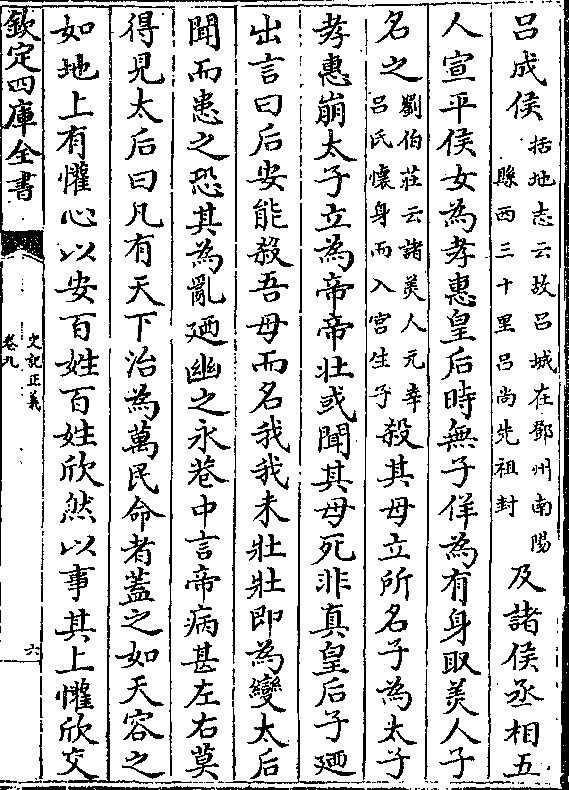 呂成侯括地志云故呂城在鄧州南陽縣西三十里呂尚先祖封及諸侯丞相五
人宣平侯女為孝惠皇后時無子佯為有身取美人子
名之劉伯莊云諸美人元幸呂氏懷身而入宮生子殺其母立所名子為太子
孝惠崩太子立為帝帝壯或聞其母死非真皇后子廼
出言曰后安能殺吾母而名我我未壯壯即為變太后
聞而患之恐其為亂廼幽之永巷中言帝病甚左右莫
得見太后曰凡有天下治為萬民命者蓋之如天容之
如地上有懽心以安百姓百姓欣然以事其上懽欣交
欽定四庫全書
史記正義
卷九
六